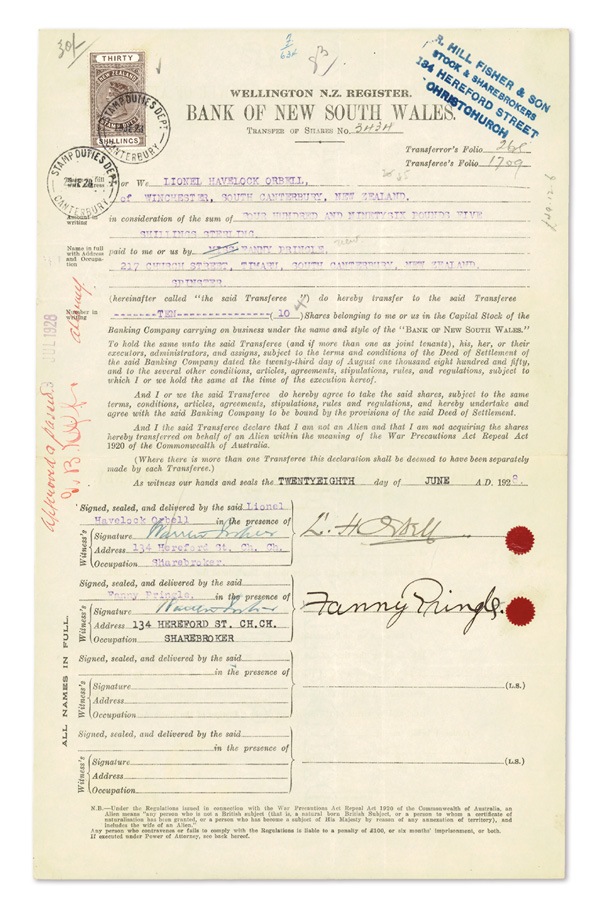 30/-
THIRTY
NEW ZEALAND
SHILLINGS
STAMP DUTIES DEPT
CANTERBURY
STAMP DUTIES DEPT
CANTERBURY
R. HILL FISHER & SON
STOCK & SHAREBROKERS
134 HEREFORD STREET
CHRISTCHURCH
WELLINGTON N.Z. REGISTER.
BANK OF NEW SOUTH WALES.
TRANSFER OF SHARES No. 3434
Transferror's Folio 265
Transferee's Folio 1709
or We LIONEL HAVELOCK ORBELL,
of WINCHESTER, SOUTH CANTERBURY, NEW ZEALAND.
Amount in writing
in consideration of the sum of ONE HUNDRED AND NINETYSIX POUNDS FIVE
SHILLINGS STERLING.
Name in full with Address and Occupation
paid to me or us by MISS FANNY PRINGLE.
217 CHURCH STREET, TIMARU, SOUTH CANTERBURY, NEW ZEALAND.
SPINSTER
(hereinafter called "the said Transferee ") do hereby transfer to the said Transferee
Number in writing
-------TEN----------------(10) Shares belonging to me or us in the Capital Stock of the
Banking Company carrying on business under the name and style of the "BANK OF NEW SOUTH WALES."
To hold the same unto the said Transferee (and if more than one as joint tenants), his, her, or their
executors, administrators, and assigns, subject to the terms and conditions of the Deed of Settlement of
the said Banking Company dated the twenty-third day of August one thousand eight hundred and fifty,
and to the several other conditions, articles, agreements, stipulations, rules, and regulations, subject to
which I or we hold the same at the time of the execution hereof.
And I or we the said Transferee do hereby agree to take the said shares, subject to the same
terms, conditions, articles, agreements, stipulations, rules and regulations, and hereby undertake and
agree with the said Banking Company to be bound by the provisions of the said Deed of Settlement.
And I the said Transferee declare that I am not an Alien and that I am not acquiring the shares
hereby transferred on behalf of an Alien within the meaning of the War Precautions Act Repeal Act
1920 of the Commonwealth of Australia.
(Where there is more than one Transferee this declaration shall be deemed to have been separately
made by each Transferee.)
As witness our hands and seals the TWENTYEIGHTH day of JUNE A.D. 1928.
JUL 1928
Approved & passed
Signed, sealed, and delivered by the said Lionel
Havelock Orbell in the presence of
Witness's
Signature
Address 134 Hereford St. Ch. Ch.
Occupation Sharebroker.
L. H Orbell
Signed, sealed, and delivered by the said
Fanny Pringle, in the presence of
Witness's
Signature
Address 134 HEREFORD ST. CH.CH.
Occupation SHAREBROKER
Fanny Pringle.
Signed, sealed, and delivered by the said
in the presence of
Witness's
Signature
Address
Occupation
(L.S.)
Signed, sealed, and delivered by the said
in the presence of
Witness's
Signature
Address
Occupation
(L.S.)
ALL NAMES IN FULL.
N.B.—Under the Regulations issued in connection with the War Precautions Act Repeal Act 1920 of the Commonwealth of Australia, an
Alien means "any person who is not a British subject (that is, a natural born British Subject, or a person to whom a certificate of
naturalisation has been granted, or a person who has become a subject of His Majesty by reason of any annexation of territory), and
includes the wife of an Alien."
Any person who contravenes or fails to comply with the Regulations is liable to a penalty of £100, or six months' imprisonment, or both.
If executed under Power of Attorney, see back hereof.